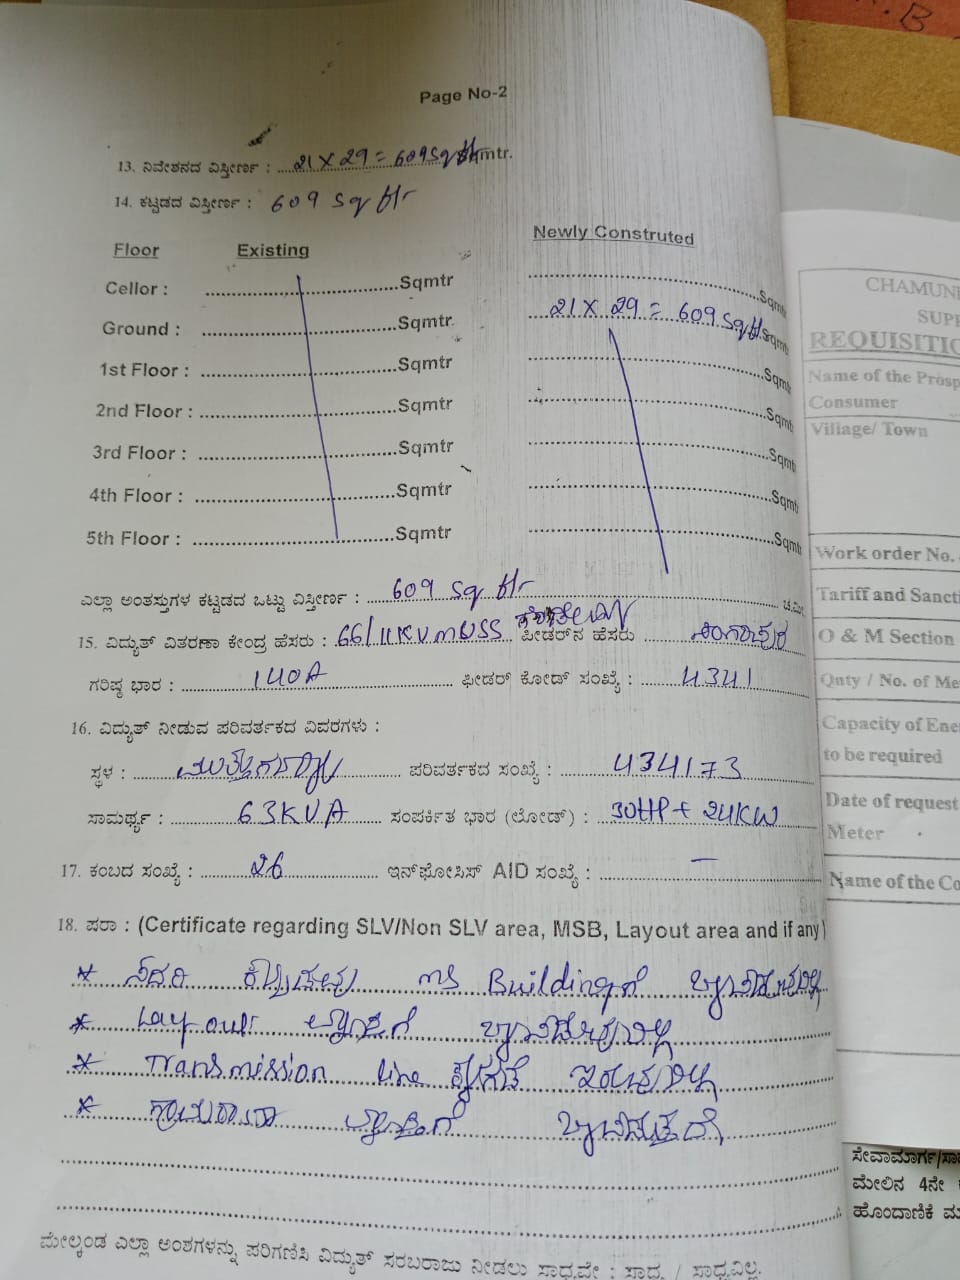 K.B
Page No-2
13. ನಿವೇಶನದ ವಿಸ್ತೀರ್ಣ : 21 X 29 = 609 Sq mtr.
14. ಕಟ್ಟಡದ ವಿಸ್ತೀರ್ಣ : 609 Sq ftr
Floor Existing Newly Construted
Cellor : Sqmtr Sqmtr
Ground : Sqmtr 21 X 29 = 609 Sqft Sqmtr
1st Floor : Sqmtr Sqmtr
2nd Floor : Sqmtr Sqmtr
3rd Floor : Sqmtr Sqmtr
4th Floor : Sqmtr Sqmtr
5th Floor : Sqmtr Sqmtr
ಎಲ್ಲಾ ಅಂತಸ್ತುಗಳ ಕಟ್ಟಡದ ಒಟ್ಟು ವಿಸ್ತೀರ್ಣ : 609 Sq ftr ಚ.ಮೀ
15. ವಿದ್ಯುತ್ ವಿತರಣಾ ಕೇಂದ್ರ ಹೆಸರು : 66/11KV MUSS ಫೀಡರ್‌ನ ಹೆಸರು
ಗರಿಷ್ಠ ಭಾರ : 140A ಫೀಡರ್ ಕೋಡ್ ಸಂಖ್ಯೆ : 4341
16. ವಿದ್ಯುತ್ ನೀಡುವ ಪರಿವರ್ತಕದ ವಿವರಗಳು :
ಸ್ಥಳ : ಪರಿವರ್ತಕದ ಸಂಖ್ಯೆ : 434173
ಸಾಮರ್ಥ್ಯ : 63KVA ಸಂಪರ್ಕಿತ ಭಾರ (ಲೋಡ್) : 30HP + 24KW
17. ಕಂಬದ ಸಂಖ್ಯೆ : 26 ಇನ್‌ಫೋಸಿಸ್ AID ಸಂಖ್ಯೆ : —
18. ಷರಾ : (Certificate regarding SLV/Non SLV area, MSB, Layout area and if any)
* ಸದರಿ ಕಟ್ಟಡವು MS Buildingಗೆ
* Layout ವ್ಯಾಪ್ತಿಗೆ
* Transmission line ಕೆಳಗಡೆ ಇರುವುದಿಲ್ಲ
* ಗ್ರಾಮಠಾಣಾ ವ್ಯಾಪ್ತಿಗೆ
ಮೇಲ್ಕಂಡ ಎಲ್ಲಾ ಅಂಶಗಳನ್ನು ಪರಿಗಣಿಸಿ ವಿದ್ಯುತ್ ಸರಬರಾಜು ನೀಡಲು ಸಾಧ್ಯವೇ : ಸಾಧ್ಯ / ಸಾಧ್ಯವಿಲ್ಲ.
CHAMUN
SUPP
REQUISITIO
Name of the Prosp
Consumer
Village/ Town
Work order No.
Tariff and Sancti
O & M Section
Qnty / No. of Me
Capacity of Ene
to be required
Date of request
Meter
Name of the Co
ಸೇವಾಮಾರ್ಗ/ಸಾ
ಮೇಲಿನ 4ನೇ
ಹೊಂದಾಣಿಕೆ ಮ